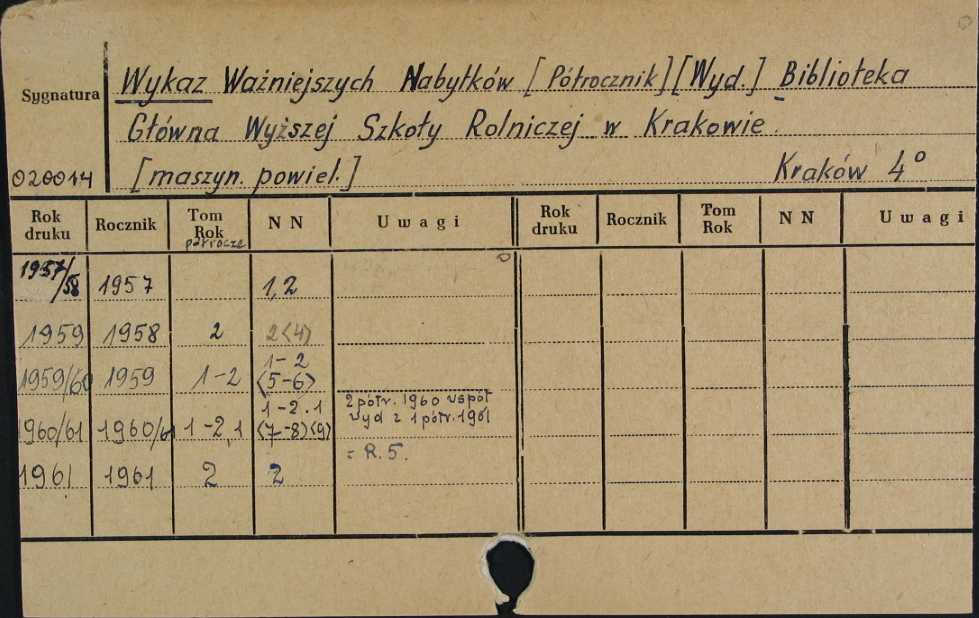 Wykaz Ważniejszych Nabytków [Półrocznik] [Wyd.] Biblioteka
Sygnatura
Główna Wyższej Szkoły Rolniczej w Krakowie.
020014 [maszyn. powiel.] Kraków 4°
Rok druku Rocznik Tom Rok półrocze N N Uwagi Rok druku Rocznik Tom Rok N N Uwagi
1957/58 1957 1,2
1959 1958 2 2<4>
1959/60 1959 1-2 1-2 <5-6>
1960/61 1960/61 1-2,1 1-2.1 <7-8><9> 2 półr. 1960 współ wyd z 1 półr. 1961
= R. 5.
1961 1961 2 2